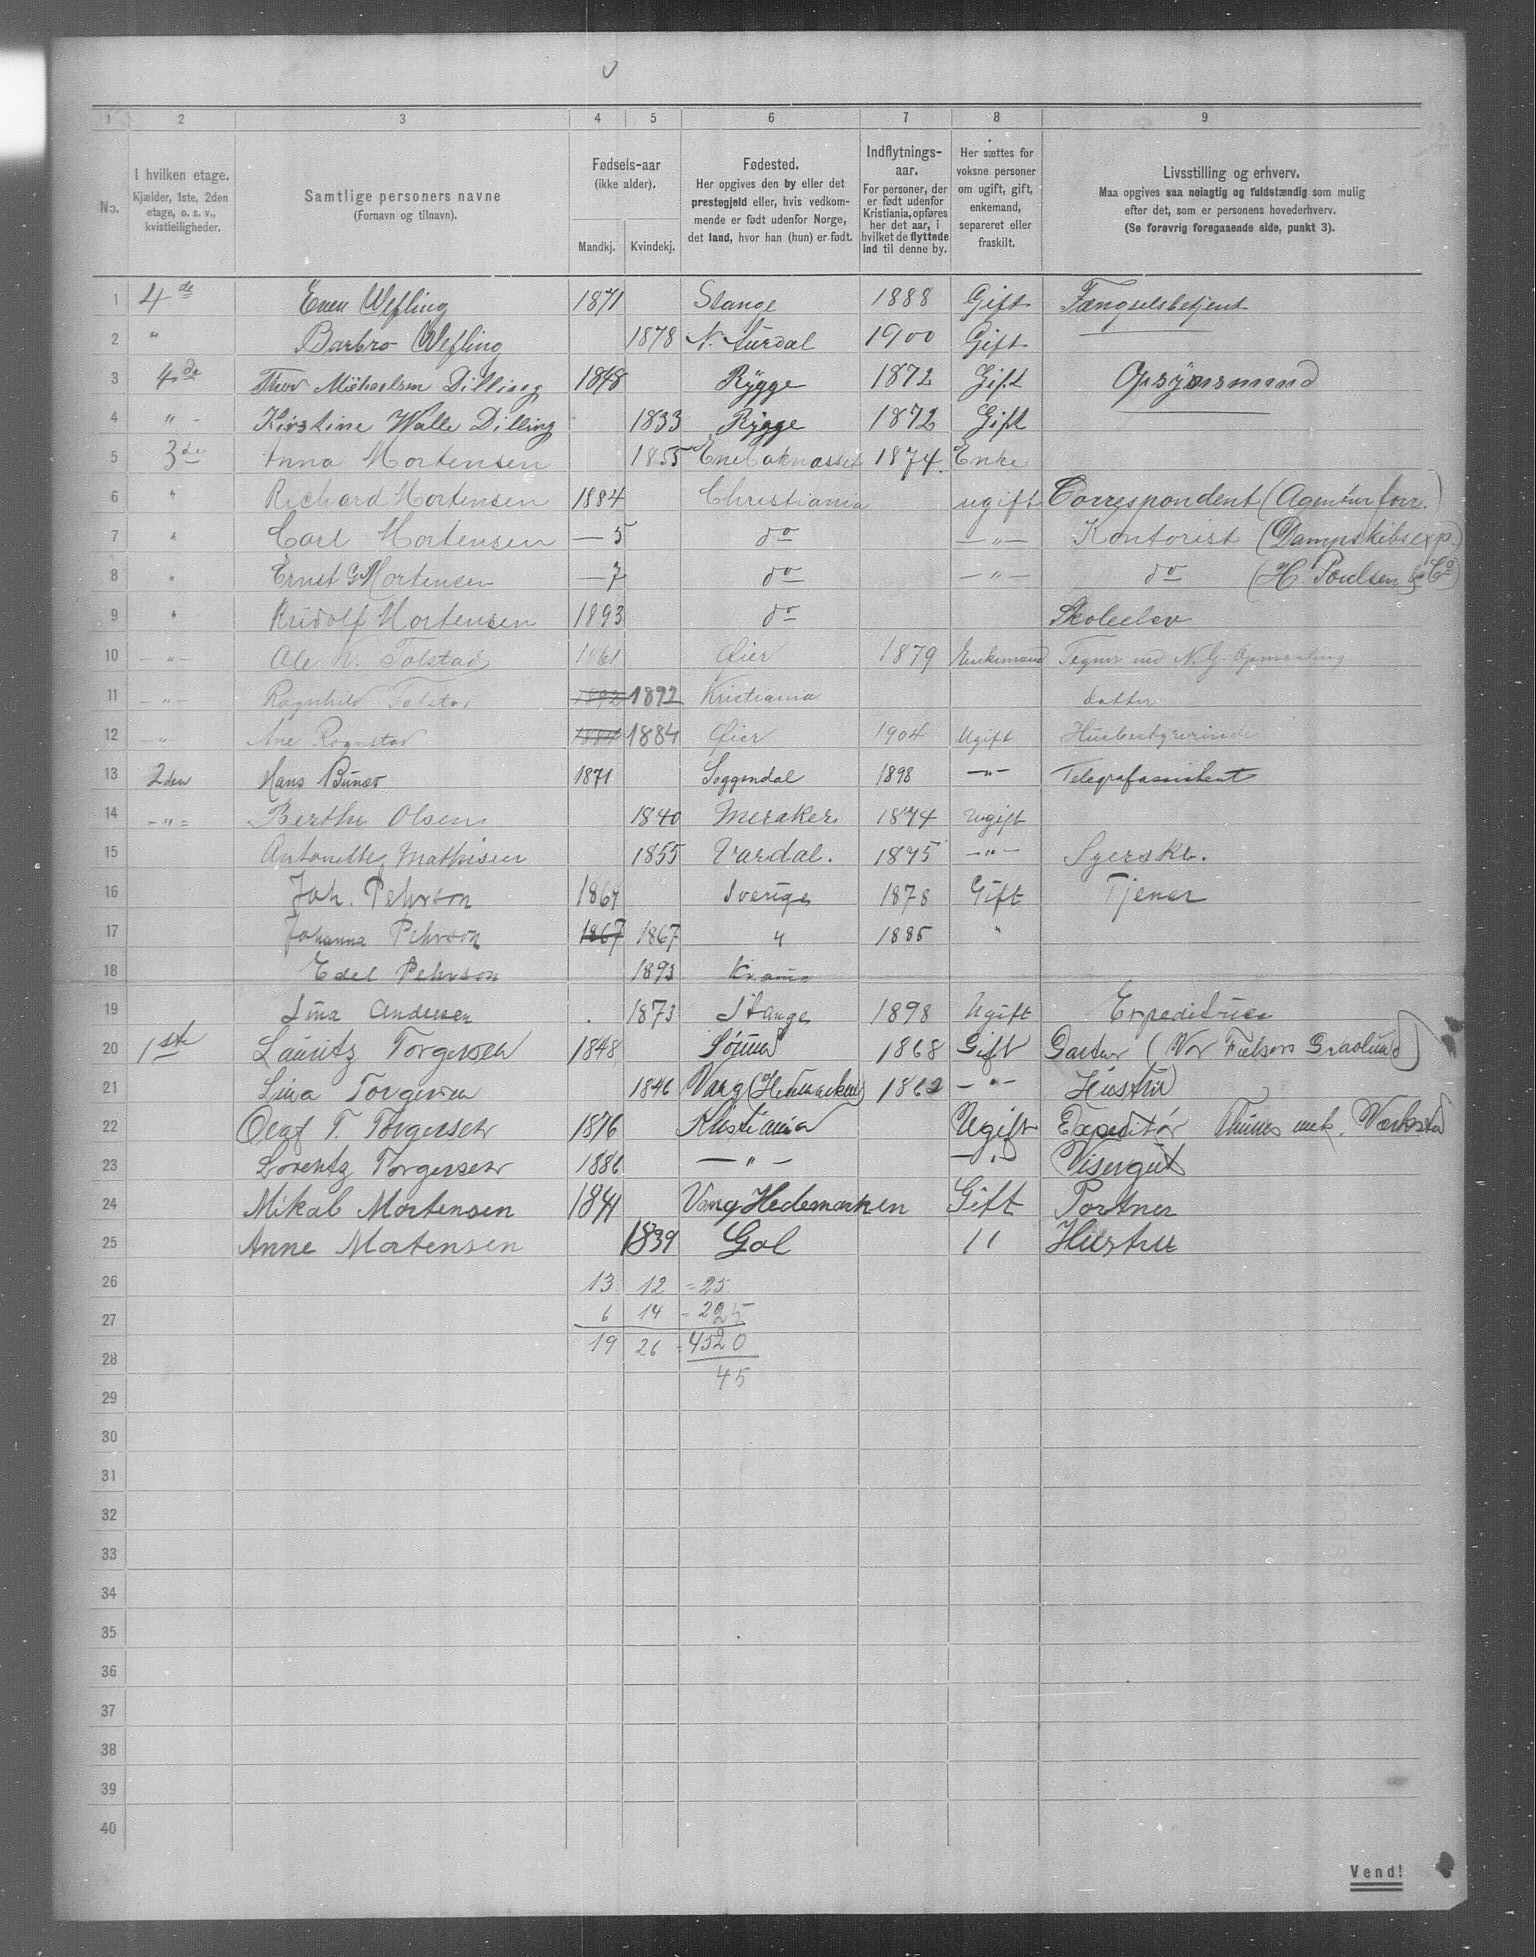 1 2 3 4 5 6 7 8 9
No.
I hvilken etage.
Kjælder, 1ste, 2den
etage, o. s. v.,
kvistleiligheder.
Samtlige personers navne
(Fornavn og tilnavn).
Fødsels-aar
(ikke alder).
Mandkj. Kvindekj.
Fødested.
Her opgives den by eller det
prestegjeld eller, hvis vedkom-
mende er født udenfor Norge,
det land, hvor han (hun) er født.
Indflytnings-
aar.
For personer, der
er født udenfor
Kristiania, opføres
her det aar, i
hvilket de flyttede
ind til denne by.
Her sættes for
voksne personer
om ugift, gift,
enkemand,
separeret eller
fraskilt.
Livsstilling og erhverv.
Maa opgives saa nøiagtig og fuldstændig som mulig
efter det, som er personens hovederhverv.
(Se forøvrig foregaaende side, punkt 3).
1 4de Even Wefling 1871 Stange 1888 Gift Fængselsbetjent
2 " Barbro Wefling 1878 N. Aurdal 1900 Gift
3 4de Thor Michaelsen Dilling 1848 Rygge 1872 Gift Opsynsmand
4 " - Kirstine Walle Dilling 1833 Rygge 1872 Gift
5 3die Anna Mortensen 1855 Enebaknasset 1874. Enke
6 " Richard Mortensen 1884 Christiania ugift Correspondent (Agentur forr.)
7 " Carl Mortensen — 5 do — " — Kontorist (Dampskibsexp.)
8 " Ernst G Mortensen — 7 do — " — do (H. Poulsen & Co)
9 " Rudolf Mortensen 1893 do Skoleelev
10 — " — Ole N. Tolstad 1861 Øier 1879 Enkemand Tegner ved N. G. Opmaaling
11 — " — Ragnhild Tolstad 1892 1892 Kristiania Datter
12 — " Ane Rognstad 1884 1884 Øier 1904 Ugift Husbestyrerinde
13 2den Hans Bunæs 1871 Soggendal 1898 — " — Telegrafassistent
14 — " = Berthe Olsen 1840 Meraker 1874 Ugift
15 Antonette Mathisen 1855 Vardal. 1875 — " — Syerske.
16 Joh. Pehrson 1867 Sverige 1878 Gift Tjener
17 Johanna Pehrson 1867 1867 " 1885 "
18 Edel Pehrson 1893 Krania
19 Lina Andersen 1873 Stange 1898 Ugift Expeditrice
20 1ste Lauritz Torgersen 1848 1868 Gift Gartner (Vor Frelsers Gravlund)
21 Lina Torgersen 1846 Vang (Hedemarken) 1862 — " — Hustru
22 Olaf T. Torgersen 1876 Kristiania Ugift Expeditør Thunes mek. Værksted
23 Lorentz Torgersen 1886 — " — — " — Visergut
24 Mikal Mortensen 1841 Vang Hedemarken Gift Portner
25 Anne Mortensen 1839 Gol " Hustru
26 13 12 = 25
27 6 14 - 2025
19 26 = 4520
28
45
29
30
31
32
33
34
35
36
37
38
39
40
Vend!